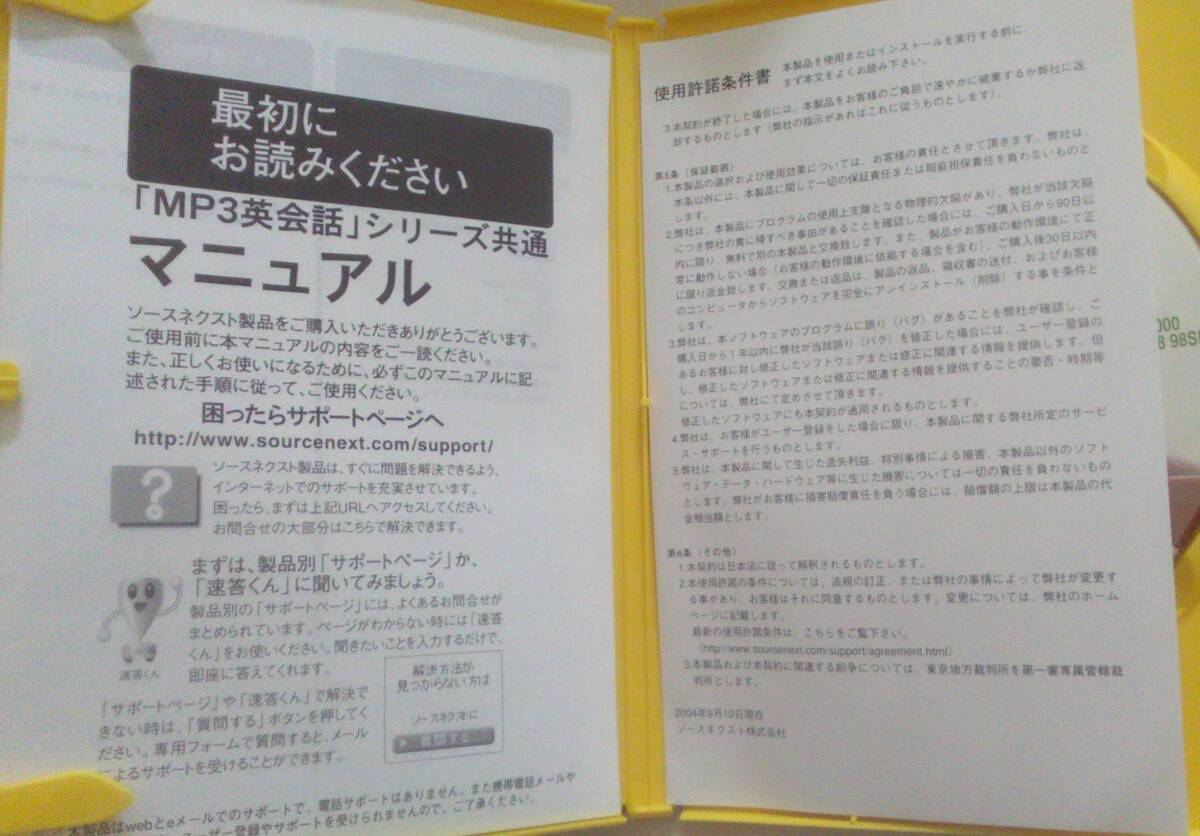 最初に
お読みください
「MP3英会話」シリーズ共通
マニュアル
ソースネクスト製品をご購入いただきありがとうございます。
ご使用前に本マニュアルの内容をご一読ください。
また、正しくお使いになるために、必ずこのマニュアルに記
述された手順に従って、ご使用ください。
困ったらサポートページへ
http://www.sourcenext.com/support/
?
ソースネクスト製品は、すぐに問題を解決できるよう、
インターネットでのサポートを充実させています。
困ったら、まずは上記URLへアクセスしてください。
お問合せの大部分はこちらで解決できます。
まずは、製品別「サポートページ」か、
「速答くん」に聞いてみましょう。
製品別の「サポートページ」には、よくあるお問合せが
まとめられています。ページがわからない時には「速答
くん」をお使いください。聞きたいことを入力するだけで、
即座に答えてくれます。
速答くん
「サポートページ」や「速答くん」で解決で
きない時は、「質問する」ボタンを押してく
ださい。専用フォームで質問すると、メール
によるサポートを受けることができます。
解決方法が
見つからない方は
ソースネクストに
質問する
本製品はwebとeメールでのサポートで、電話サポートはありません。また携帯電話メールや
ユーザー登録やサポートを受けられませんので、ご了承ください。
使用許諾条件書
本製品を使用またはインストールを実行する前に、
まず本文をよくお読み下さい。
3.本契約が終了した場合には、本製品をお客様のご負担で速やかに破棄するか弊社に返
却するものとします（弊社の指示があればこれに従うものとします）。
第5条（保証範囲）
1.本製品の選択および使用効果については、お客様の責任とさせて頂きます。弊社は、
本条以外には、本製品に関して一切の保証責任または瑕疵担保責任を負わないものと
します。
2.弊社は、本製品にプログラムの使用上支障となる物理的欠陥があり、弊社が当該欠陥
につき弊社の責に帰すべき事由があることを確認した場合には、ご購入日から90日以
内に限り、無料で別の本製品と交換致します。また、製品がお客様の動作環境にて正
常に動作しない場合（お客様の動作環境に依拠する場合を含む）、ご購入後30日以内
に限り返金致します。交換または返品は、製品の返品、領収書の送付、およびお客様
のコンピュータからソフトウェアを完全にアンインストール（削除）する事を条件と
します。
3.弊社は、本ソフトウェアのプログラムに誤り（バグ）があることを弊社が確認し、ご
購入日から1年以内に弊社が当該誤り（バグ）を修正した場合には、ユーザー登録の
あるお客様に対し修正したソフトウェアまたは修正に関連する情報を提供します。但
し、修正したソフトウェアまたは修正に関連する情報を提供することの要否・時期等
については、弊社にて定めさせて頂きます。
修正したソフトウェアにも本契約が適用されるものとします。
4.弊社は、お客様がユーザー登録をした場合に限り、本製品に関する弊社所定のサービ
ス・サポートを行うものとします。
5.弊社は、本製品に関して生じた逸失利益、特別事情による損害、本製品以外のソフト
ウェア・データ・ハードウェア等に生じた損害については一切の責任を負わないもの
とします。弊社がお客様に損害賠償責任を負う場合には、賠償額の上限は本製品の代
金相当額とします。
第6条（その他）
1.本契約は日本法に従って解釈されるものとします。
2.本使用許諾の条件については、法規の訂正、または弊社の事情によって弊社が変更す
る事があり、お客様はそれに同意するものとします。変更については、弊社のホーム
ページに記載します。
最新の使用許諾条件は、こちらをご覧下さい。
（http://www.sourcenext.com/support/agreement.html）
3.本製品および本契約に関連する紛争については、東京地方裁判所を第一審専属管轄裁
判所とします。
2004年9月10日現在
ソースネクスト株式会社
000
98S